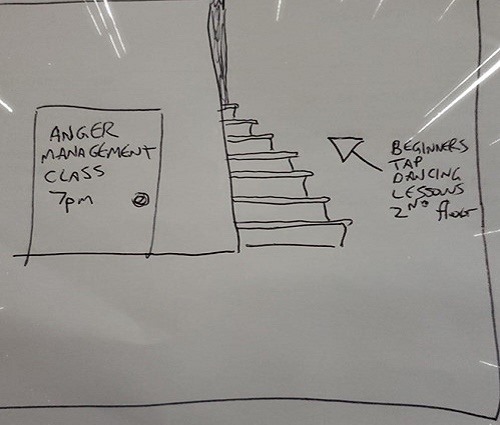 ANGER
MANAGEMENT
CLASS
7pm
BEGINNERS
TAP
DANCING
LESSONS
2ND floor